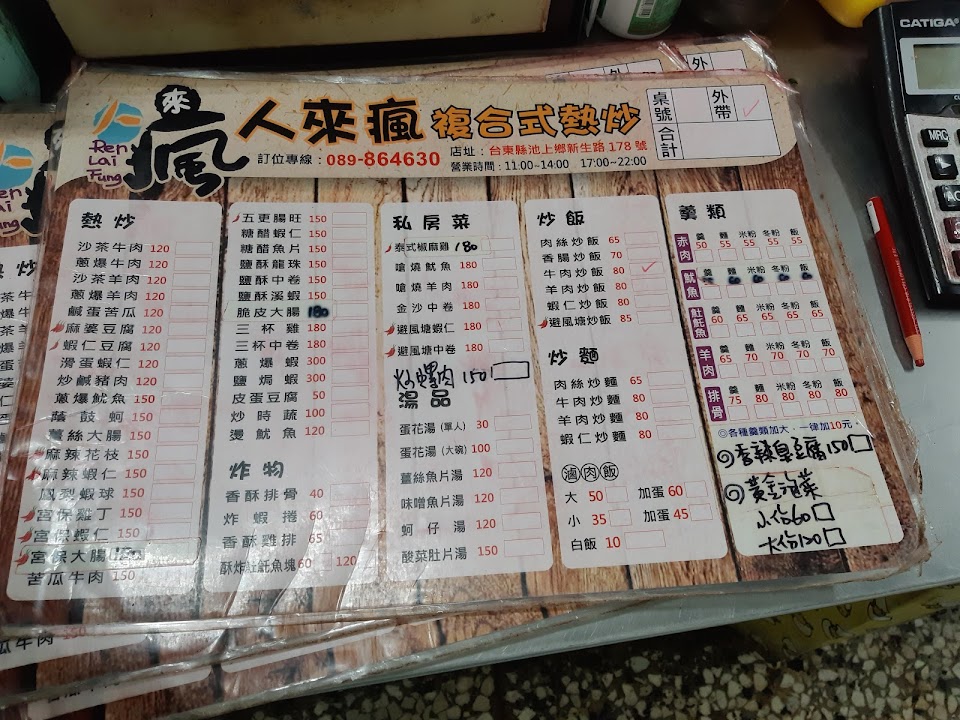 Ren Lai Fung
來瘋
人來瘋 複合式熱炒
訂位專線：089-864630
店址：台東縣池上鄉新生路178號
營業時間：11:00~14:00 17:00~22:00
桌號
外帶
合計
熱炒
沙茶牛肉 120
蔥爆牛肉 120
沙茶羊肉 120
蔥爆羊肉 120
鹹蛋苦瓜 120
麻婆豆腐 120
蝦仁豆腐 120
滑蛋蝦仁 120
炒鹹豬肉 120
蔥爆魷魚 150
蔭鼓蚵 150
薑絲大腸 150
麻辣花枝 150
麻辣蝦仁 150
鳳梨蝦球 150
宮保雞丁 150
宮保蝦仁 150
宮保大腸 150
苦瓜牛肉 150
五更腸旺 150
糖醋蝦仁 150
糖醋魚片 150
鹽酥龍珠 150
鹽酥中卷 150
鹽酥溪蝦 150
脆皮大腸 180
三杯雞 180
三杯中卷 180
蔥爆蝦 300
鹽焗蝦 300
皮蛋豆腐 50
炒時蔬 100
燙魷魚 120
炸物
香酥排骨 40
炸蝦捲 60
香酥雞排 65
酥炸魠魠魚塊 60 120
私房菜
泰式椒麻雞 180
嗆燒魷魚 180
嗆燒羊肉 180
金沙中卷 180
避風塘蝦仁 180
避風塘中卷 180
炒螺肉 150
湯品
蛋花湯 (單人) 30
蛋花湯 (大碗) 100
薑絲魚片湯 120
味噌魚片湯 120
蚵仔湯 120
酸菜肚片湯 150
炒飯
肉絲炒飯 65
香腸炒飯 70
牛肉炒飯 80
羊肉炒飯 80
蝦仁炒飯 80
避風塘炒飯 85
炒麵
肉絲炒麵 65
牛肉炒麵 80
羊肉炒麵 80
蝦仁炒麵 80
滷肉飯
大 50 加蛋 60
小 35 加蛋 45
白飯 10
羹類
赤肉 羹 50 麵 55 米粉 55 冬粉 55 飯 55
魷魚 羹 麵 60 米粉 60 冬粉 60 飯 60
魠魠魚 羹 60 麵 65 米粉 65 冬粉 65 飯 65
羊肉 羹 65 麵 70 米粉 70 冬粉 70 飯 70
排骨 羹 75 麵 80 米粉 80 冬粉 80 飯 80
◎各種羹類加大，一律加10元。
◎香辣臭豆腐150
◎黃金泡菜
小份60
大份120
CATIGA
MRC
AC